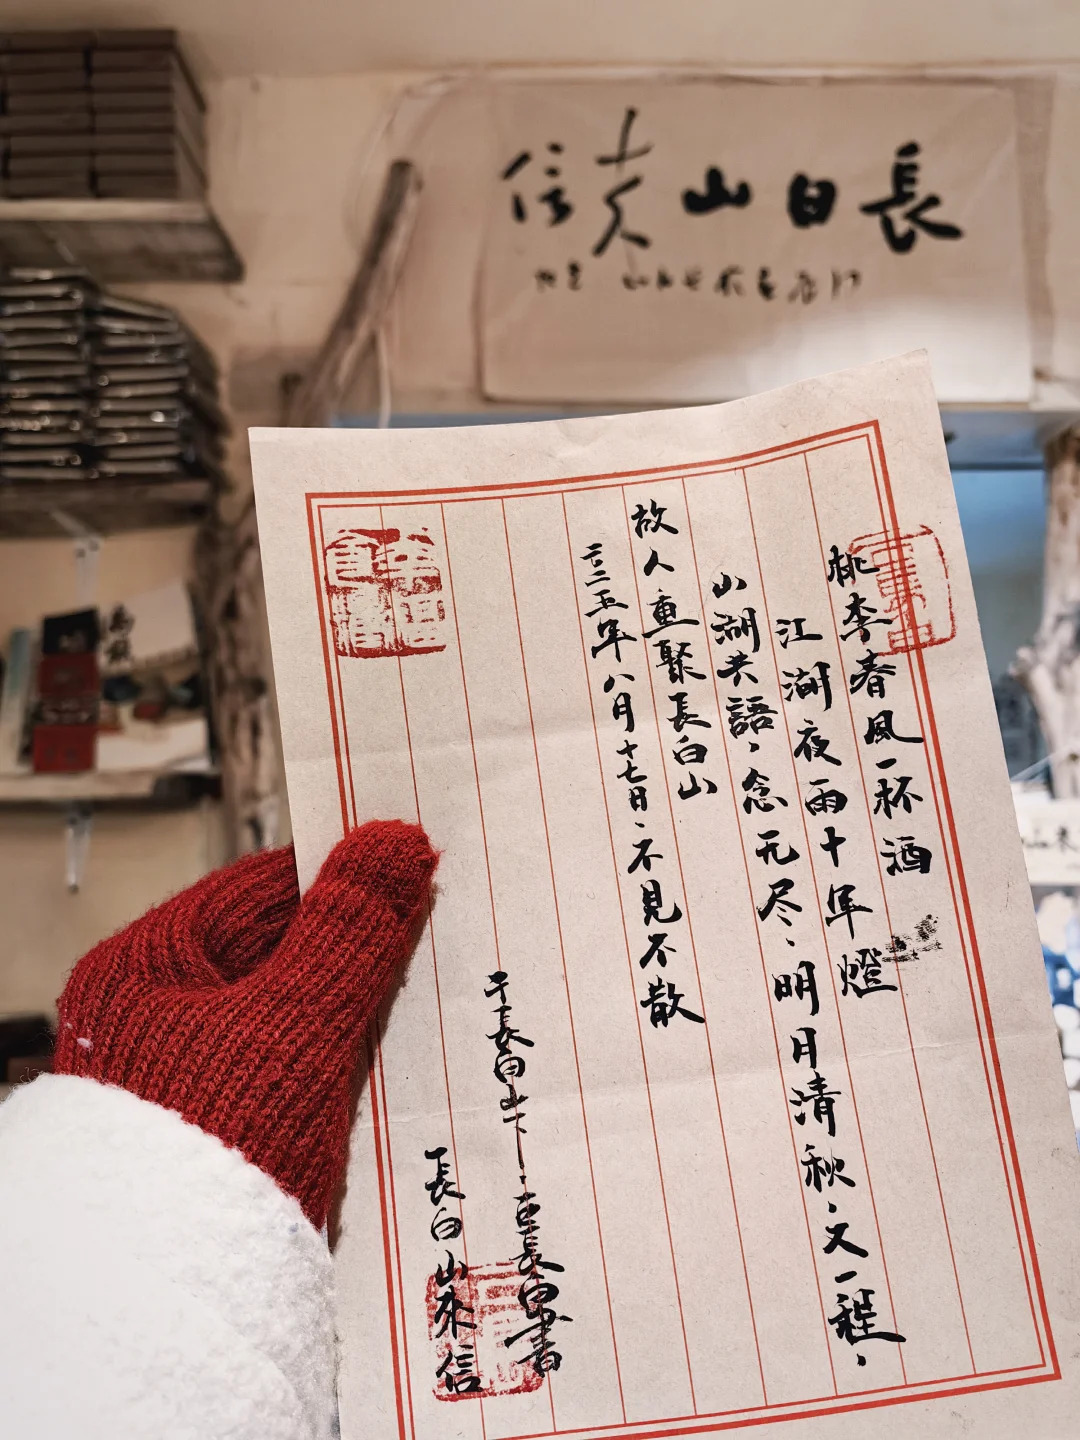 長白山来信
桃李春風一杯酒
江湖夜雨十年燈
山湖共語，念无尽、明月清秋，又一程，
故人重聚長白山
二〇二五年八月十七日、不見不散
于長白山下、
長白山來信